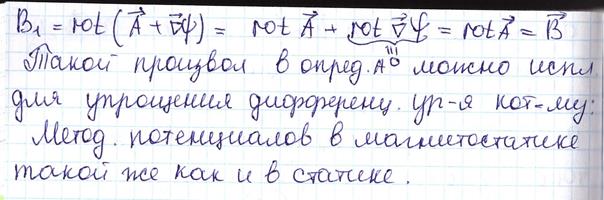 B₁ = rot(A⃗ + ∇⃗ψ) = rot A⃗ + rot ∇⃗ψ = rot A⃗ = B⃗
≡ 0
Такой произвол в опред. A можно испл
для упрощения дифференц. ур-я кот-му:
Метод. потенциалов в магнитостатике
такой же как и в статике.